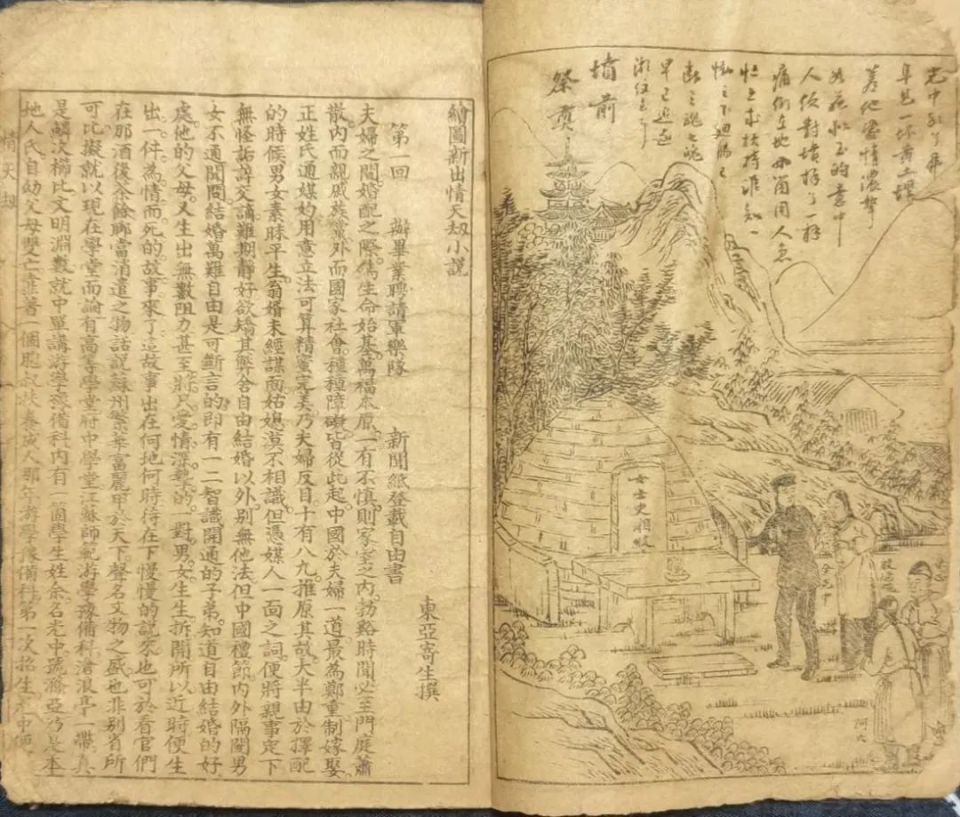 早見一坏黃土埋
如花似玉的意中
人便對墳拜了一拜
痛倒在地兩箇用人急
忙上前扶持誰知一
斷三魂七魄
早已追逐
湘紋去了
墳前
祭奠
女士史湘紋
余光中
阿六
繪圖新出情天刼小說
東亞寄生撰
第一回　辦畢業聘請軍樂隊　新聞紙登載自由書
夫婦之間婚配之際偽生命始基萬福本原一有不慎則家室之內勃谿時聞必至門庭蕭
散內而親戚族黨外而國家社會種種障礙皆從此起中國於夫婦一道最為鄭重制嫁娶
正姓氏通媒妁用意立法可算精密完美乃夫婦反目十有八九推原其故大半由於擇配
的時候男女素昧平生翁婿未經謀面姑媳並不相識但憑媒人一面之詞便將親事定下
無怪詬誶交謫難期靜好欲矯其弊舍自由結婚以外別無他法但中國禮節內外隔閡男
女不通聞問結婚萬難自由是可斷言的即有一二智識開通的子弟知道自由結婚的好
處他的父母又生出無數阻力甚至將只愛情深摯的一對男女生生拆開所以近時便生
出一件為情而死的故事來了這故事出在何地何時待在下慢慢的說來也可於看官們
在那酒後茶餘聊當消遣之物話說蘇州繁華富麗甲於天下聲名文物之盛也非別省所
可比擬就以現在學堂而論有高等學堂府中學堂江蘇師範游學豫備科滄浪亭一帶真
是鱗次櫛比文明淵藪就中單講游學豫備科內有一個學生姓余名光中號滌亞乃是本
地人氏自幼父母雙亡靠著一個胞叔扶養成人那年游學豫備科第一次招生光中便
情天刼